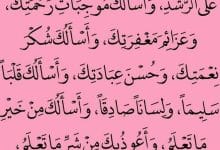 عَلَى الرُّشْدِ، وَأَسْأَلُكَ مُوجِبَاتِ رَحْمَتِكَ،
وَعَزَائِمَ مَغْفِرَتِكَ، وَأَسْأَلُكَ شُكْرَ
نِعْمَتِكَ، وَحُسْنَ عِبَادَتِكَ، وَأَسْأَلُكَ قَلْبَاً
سَلِيمَاً، وَلِسَانَاً صَادِقَاً، وَأَسْأَلُكَ مِنْ خَيْرِ
مَا تَعْلَمُ، وَأَعُوذُ بِكَ مِنْ شَرِّ مَا تَعْلَمُ،